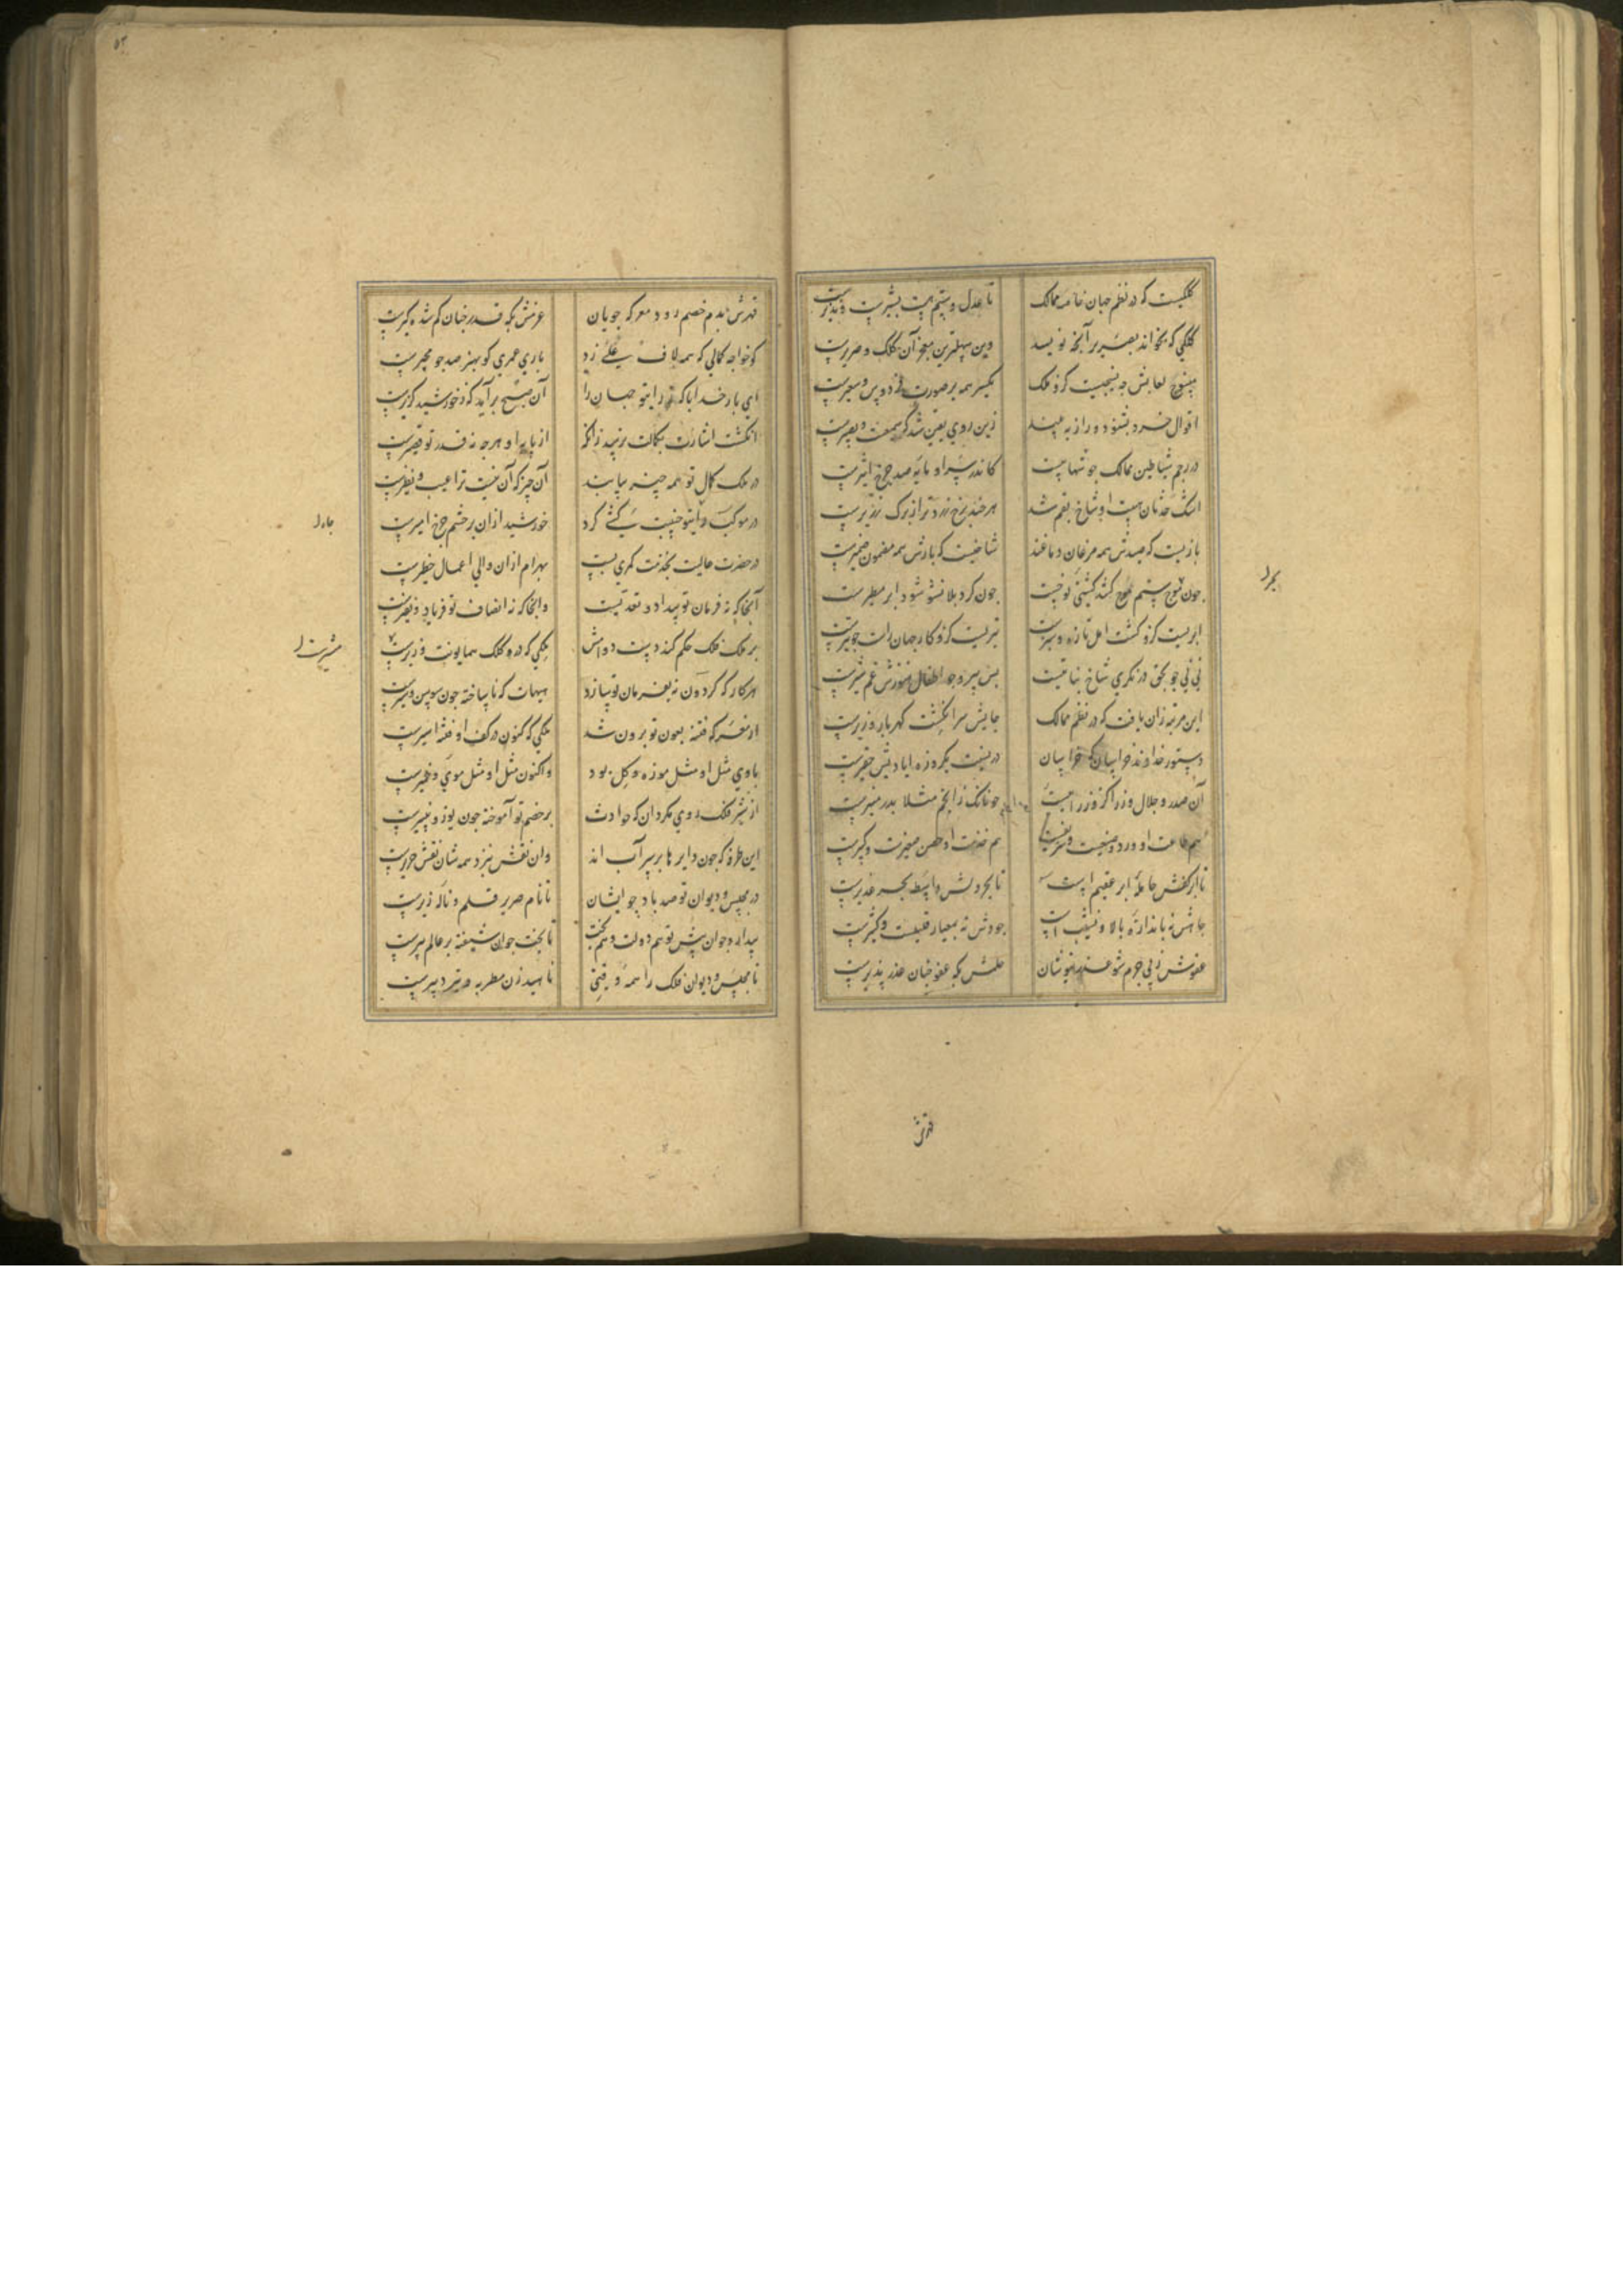 کلکیست که در نظم جهان خاصه ممالک تا عدل و ستم هست بشیرست و نذیرست
کلکی که بخواند بصریر آنچه نویسد وین سهلترین معجز آن کلک و صریرست
اقوال خرد بشنود و راز ببیند زین روی یقین شد که سمیعت و بصیرست
در رجم شیاطین ممالک چو شهابیست کاندر سر او مایه صد چرخ اثیرست
اشک حدثان هست او شاخ بقم شد هر چند برخ زردتر از برک زریرست
بازیست که صیدش همه مرغان دماغند شاخیست که بارش همه مضمون ضمیرست
چون موج ستم اوج کند کشتی نوحیست چون کرد بلا نشو شود ابر مطیرست
ابریست کزو کشت امل تازه و سبزست تیریست کزو کار جهان راست چو تیرست
نی نی چو بحق در نکری شاخ نباتیست بس پیر و جو اطفال هنوزش غم شیرست
این مرتبه زان یافت که در نظم ممالک جایش سر انکشت کهربار وزیرست
دستور خداوند خراسان که خراسان در نسبت یکروزه ایادیش حقیرست
آن صدر و جلال وزرا کز وزرا چونانک ز انجم مثلا بدر منیرست
هم طاعت او ورد وضیعست و شریفست هم خدمت او حصن صغیرست و کبیرست
تا ابر کفش حامله ابر عقیم است تا بحر دلش واسطه بحر غدیرست
جاهش نه باندازه بالا و نشیب است جودش نه بمعیار قلیلست و کثیرست
عفوش ز پی جرم شود عذر نیوشان حلمش بکه عفو خنان عذر پذیرست
قهرش
بحر
قهرش بدم خصم رود معرکه جویان عزمش بکه قدر خنان کم شده کیرست
کو خواجه کمالی که همه لاف علی زد باری عمری کو بهنر صد چو مجیرست
ای بار خدایا که ز رای تو جهان را آن صبح برآید که ز خورشید کزیرست
انکشت اشارت بکمالت نرسد زانک از پایه او هر چه نه قدر تو قصیرست
در ملک کمال تو همه چیز بیابند آن چیز که آن نیست ترا عیب و نظیرست
در موکب رای تو جنیبت کشی کرد خورشید ازان بر حشم چرخ امیرست
در حضرت عالیت بخدمت کمری بست بهرام ازان والی اعمال خطیرست
آنجا که نه فرمان تو بیداد و تعدیست وانجا که نه انصاف تو فریاد و نفیرست
بر ملک فلک حکم کند دست دوامش ملکی که درو کلک همایونت وزیرست
هر کار که کردون نه بفرمان تو سازد هیهات که ناساخته چون سوسن و سیرست
از معرکه فتنه بعون تو برون شد ملکی که کنون در کف او فتنه اسیرست
با وی مثل او مثل موزه و کل بود واکنون مثل او مثل موی و خمیرست
از شیر فلک روی مکردان که حوادث بر خصم تو آموخته چون یوز و پنیرست
این طرفه که چون دایرها بر سر آب اند وان نقش بنزد همه شان نقش حریرست
در مجلس و دیوان تو صد باد چو ایشان تا نام صریر قلم و ناله زیرست
بیدار و جوان پیش تو هم دولت و هم بخت تا بخت جوان شیفته بر عالم پیرست
تا مجلس و دیوان فلک را همه وقتی ناهید زن مطربه و تیر دبیرست